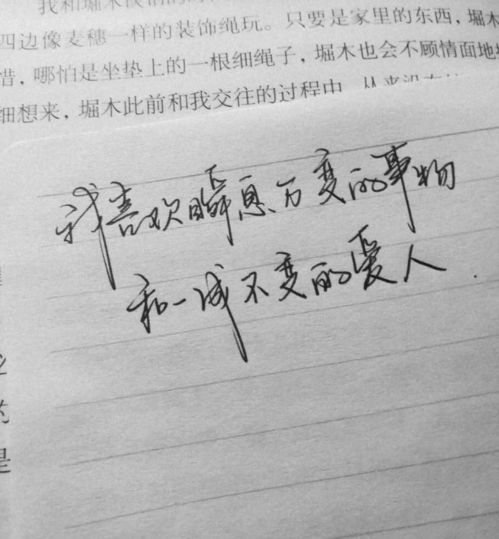 四边像麦穗一样的装饰绳玩。只要是家里的东西，堀木
惜，哪怕是坐垫上的一根细绳子，堀木也会不顾情面地
细想来，堀木此前和我交往的过程中，从来没有
我喜欢瞬息万变的事物
和一成不变的爱人
是